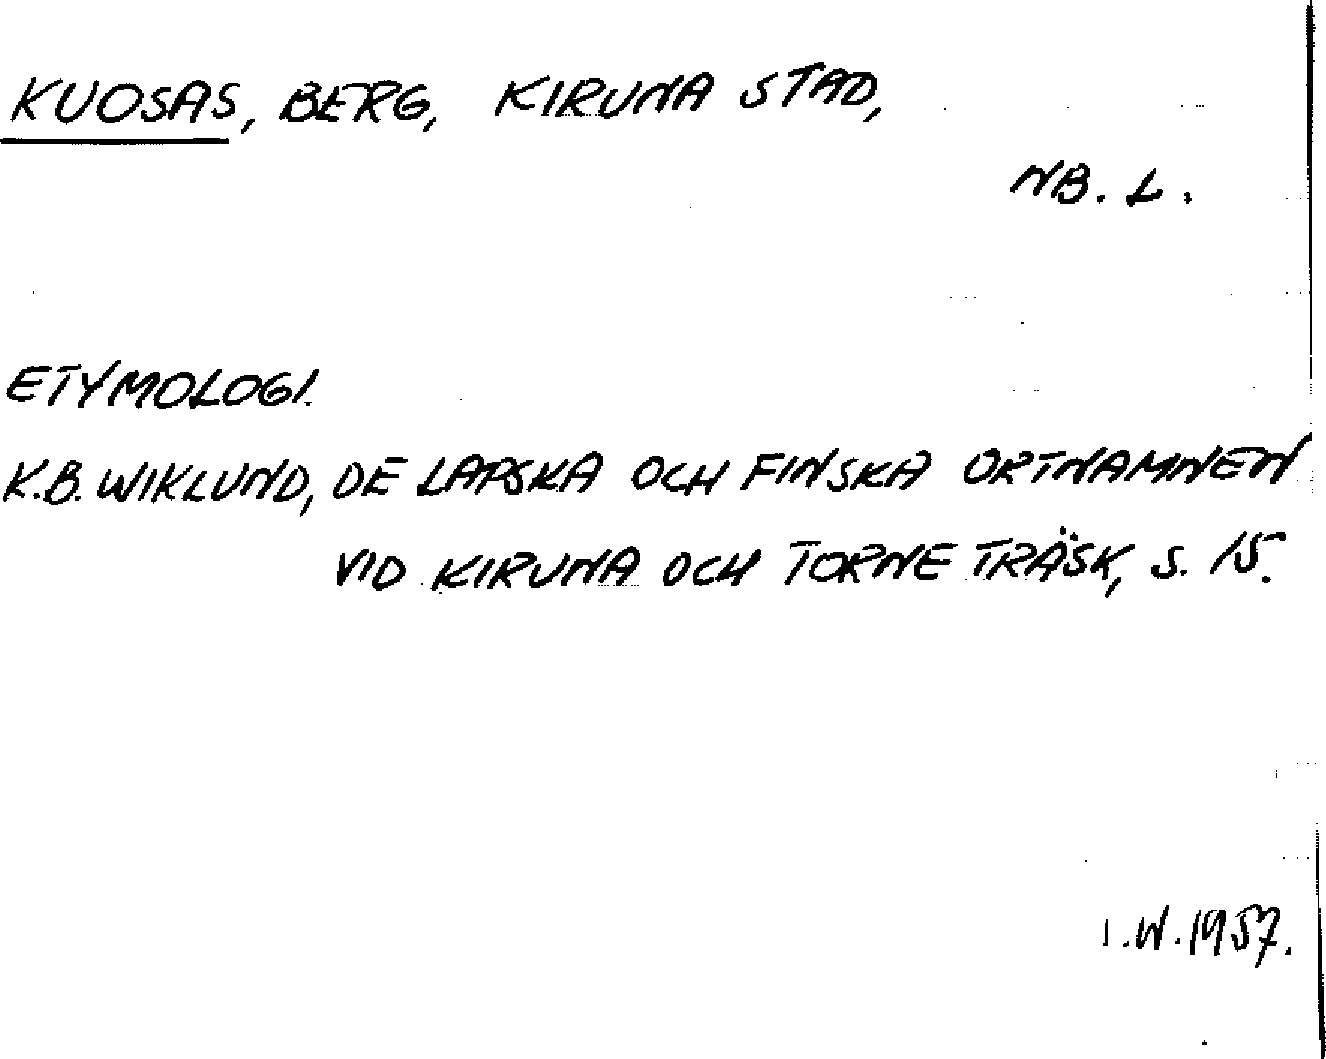 KUOSAS, BERG, KIRUNA STAD,
NB. L.
ETYMOLOGI.
K.B. WIKLUND, DE LAPSKA OCH FINSKA ORTNAMNEN
VID KIRUNA OCH TORNE TRÄSK, S. 15.
I.W. 1957.